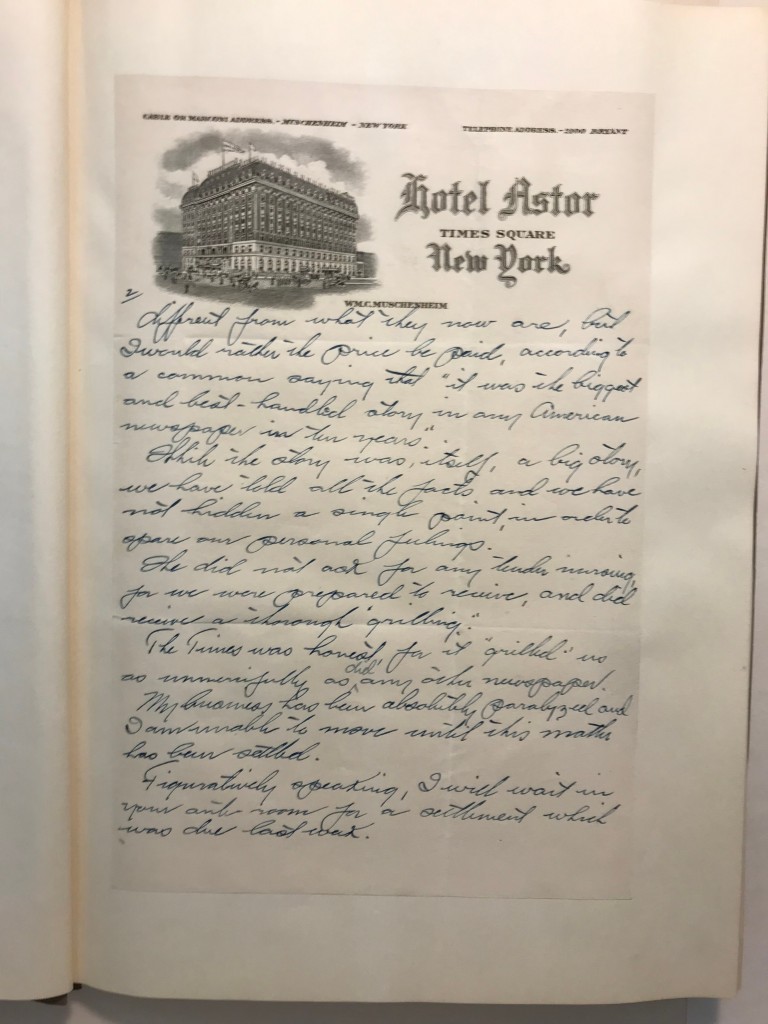 CABLE OR MARCONI ADDRESS. - MUSCHENHEIM - NEW YORK
TELEPHONE ADDRESS. - 2000 BRYANT
Hotel Astor
TIMES SQUARE
New York
WM.C.MUSCHENHEIM
2/
different from what they now are, but
I would rather the price be paid, according to
a common saying that "it was the biggest
and best-handled story in any American
newspaper in ten years."
While the story was, itself, a big story,
we have told all the facts and we have
not hidden a single point, in order to
spare our personal feelings.
We did not ask for any tender nursing,
for we were prepared to receive, and did
receive a thorough "grilling."
The Times was honest, for it "grilled" us
as unmercifully as did any other newspaper.
My business has been absolutely paralyzed and
I am unable to move until this matter
has been settled.
Figuratively speaking, I will wait in
your ante room for a settlement which
was due last week.